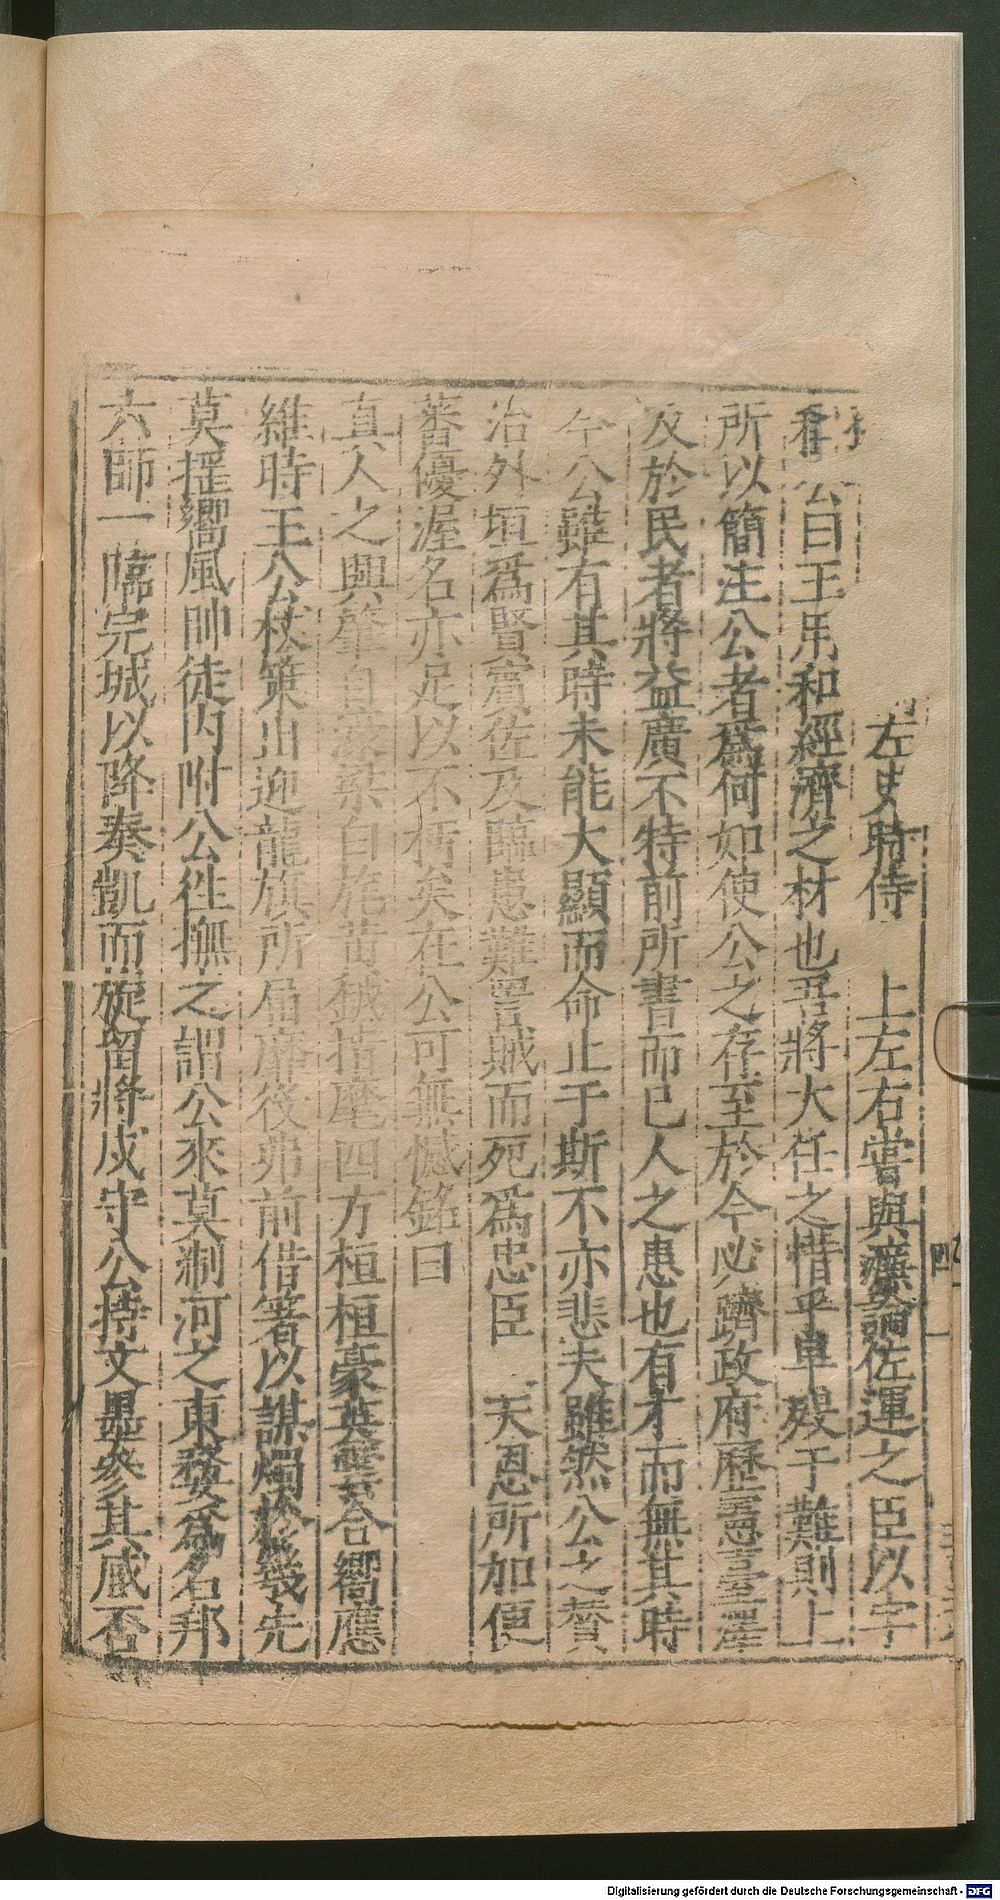 左史時侍　上左右嘗與濂論佐運之臣以字
看公曰王用和經濟之材也吾將大任之惜乎卑歿于難則上
所以簡注公者爲何如使公之存至於今必躋政府歷憲臺澤
及於民者將益廣不特前所書而已人之患也有才而無其時
今公雖有其時未能大顯而命止于斯不亦悲夫雖然公之贊
治外垣爲賢賓佐及臨患難詈賊而死爲忠臣　天恩所加便
蕃優渥名亦足以不朽矣在公可無憾銘曰
真人之興肇自濠梁白旄黃鉞指麾四方桓桓豪英雲合嚮應
維時王公杖策出迎龍旗所届靡後弗前借箸以謀燭於幾先
莫揺嚮風帥徒内附公徃撫之謂公來莫淛河之東婺爲名邦
六師一臨完城以降奏凱而旋留將戍守公持文墨參其臧否
四